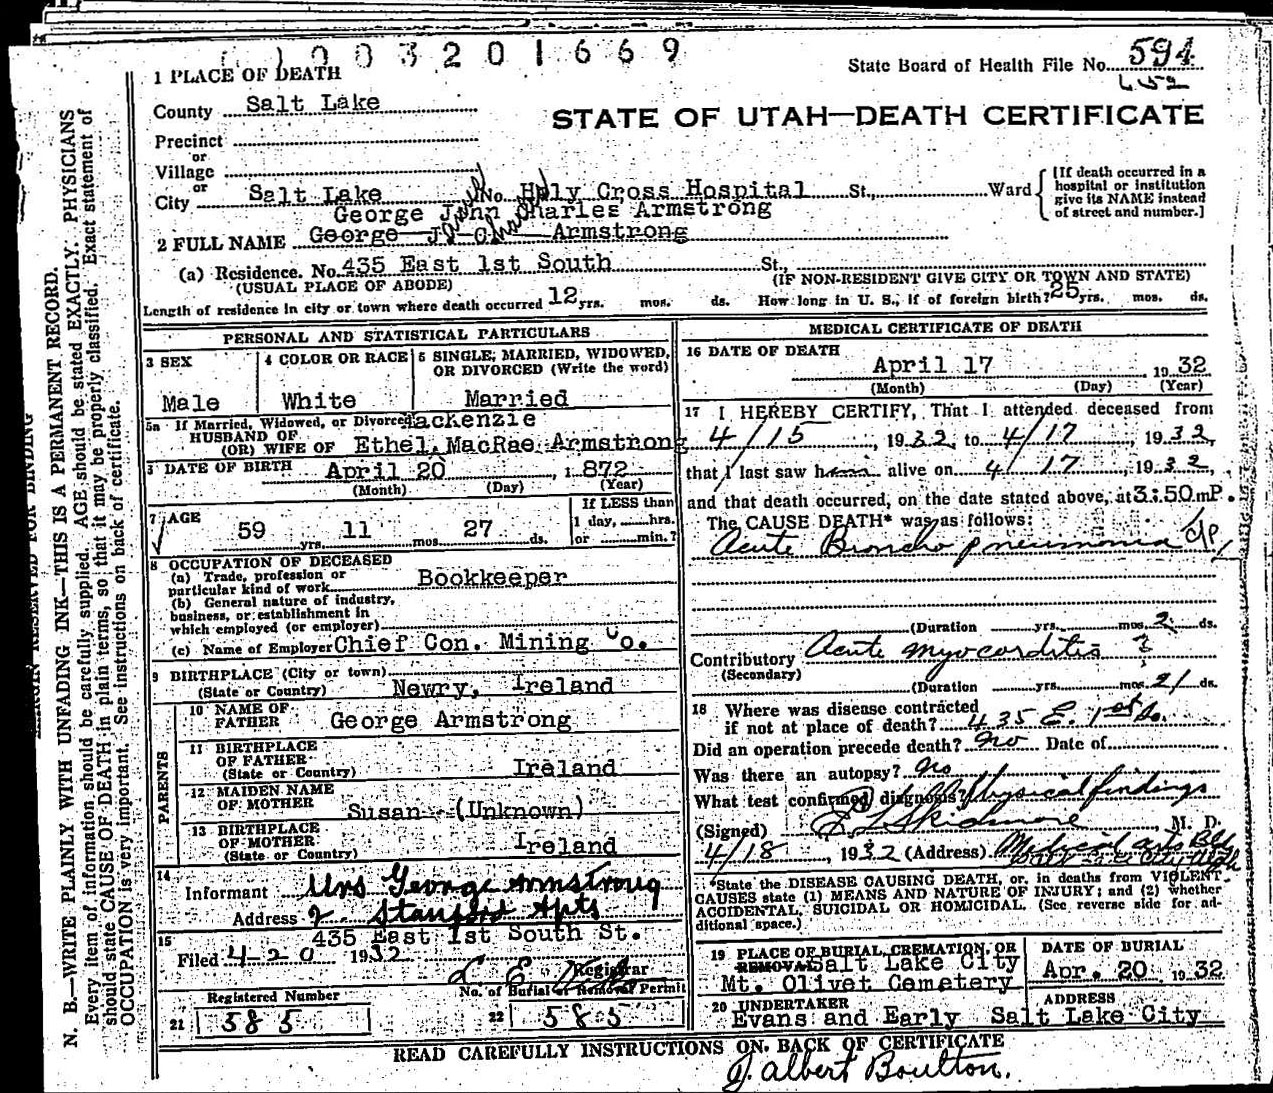 1003201669
State Board of Health File No. 594
652
1 PLACE OF DEATH
County Salt Lake
STATE OF UTAH—DEATH CERTIFICATE
Precinct
or
Village
or
City Salt Lake No. Holy Cross Hospital St., Ward
[If death occurred in a hospital or institution give its NAME instead of street and number.]
George John Charles Armstrong
2 FULL NAME George J. C. Armstrong
(a) Residence. No. 435 East 1st South St.,
(USUAL PLACE OF ABODE) (IF NON-RESIDENT GIVE CITY OR TOWN AND STATE)
Length of residence in city or town where death occurred 12 yrs. mos. ds. How long in U. S., if of foreign birth? 25 yrs. mos. ds.
PERSONAL AND STATISTICAL PARTICULARS
3 SEX
Male
4 COLOR OR RACE
White
5 SINGLE, MARRIED, WIDOWED, OR DIVORCED (Write the word)
Married
5a If Married, Widowed, or Divorced
HUSBAND OF
(OR) WIFE OF Ethel MacRae Armstrong
Mackenzie
DATE OF BIRTH April 20 1872
(Month) (Day) (Year)
7 AGE
59 yrs. 11 mos. 27 ds.
If LESS than
1 day, hrs.
or min.?
8 OCCUPATION OF DECEASED
(a) Trade, profession or
particular kind of work Bookkeeper
(b) General nature of industry,
business, or establishment in
which employed (or employer)
(c) Name of Employer Chief Con. Mining Co.
9 BIRTHPLACE (City or town)
(State or Country) Newry, Ireland
PARENTS
10 NAME OF
FATHER George Armstrong
11 BIRTHPLACE
OF FATHER
(State or Country) Ireland
12 MAIDEN NAME
OF MOTHER Susan (Unknown)
13 BIRTHPLACE
OF MOTHER
(State or Country) Ireland
14
Informant Mrs George Armstrong
Address 2 Stanford Apts
435 East 1st South St.
15
Filed 4-20 1932
Registrar
Registered Number
21 585
No. of Burial or Removal Permit
22 585
MEDICAL CERTIFICATE OF DEATH
16 DATE OF DEATH
April 17 1932
(Month) (Day) (Year)
17 I HEREBY CERTIFY, That I attended deceased from
4/15, 1932, to 4/17, 1932,
that I last saw him alive on 4/17, 1932,
and that death occurred, on the date stated above, at 3:50 mP.
The CAUSE DEATH* was as follows:
Acute Broncho pneumonia
(Duration yrs. mos. 2 ds.
Contributory Acute myocarditis ?
(Secondary)
(Duration yrs. mos. 2 ds.
18 Where was disease contracted
if not at place of death? 435 E. 1st So.
Did an operation precede death? no Date of
Was there an autopsy? no
What test confirmed diagnosis? Physical findings
(Signed) E L Skidmore, M. D.
4/18, 1932 (Address) Medical Arts Bldg
*State the DISEASE CAUSING DEATH, or, in deaths from VIOLENT
CAUSES state (1) MEANS AND NATURE OF INJURY; and (2) whether
ACCIDENTAL, SUICIDAL OR HOMICIDAL. (See reverse side for ad-
ditional space.)
19 PLACE OF BURIAL, CREMATION, OR
REMOVAL Salt Lake City
Mt. Olivet Cemetery
DATE OF BURIAL
Apr. 20 1932
20 UNDERTAKER
Evans and Early
ADDRESS
Salt Lake City
READ CAREFULLY INSTRUCTIONS ON BACK OF CERTIFICATE
J. Albert Boulton.
MARGIN RESERVED FOR BINDING
N. B.—WRITE PLAINLY WITH UNFADING INK—THIS IS A PERMANENT RECORD.
Every item of information should be carefully supplied. AGE should be stated EXACTLY. PHYSICIANS
should state CAUSE OF DEATH in plain terms, so that it may be properly classified. Exact statement of
OCCUPATION is very important. See instructions on back of certificate.